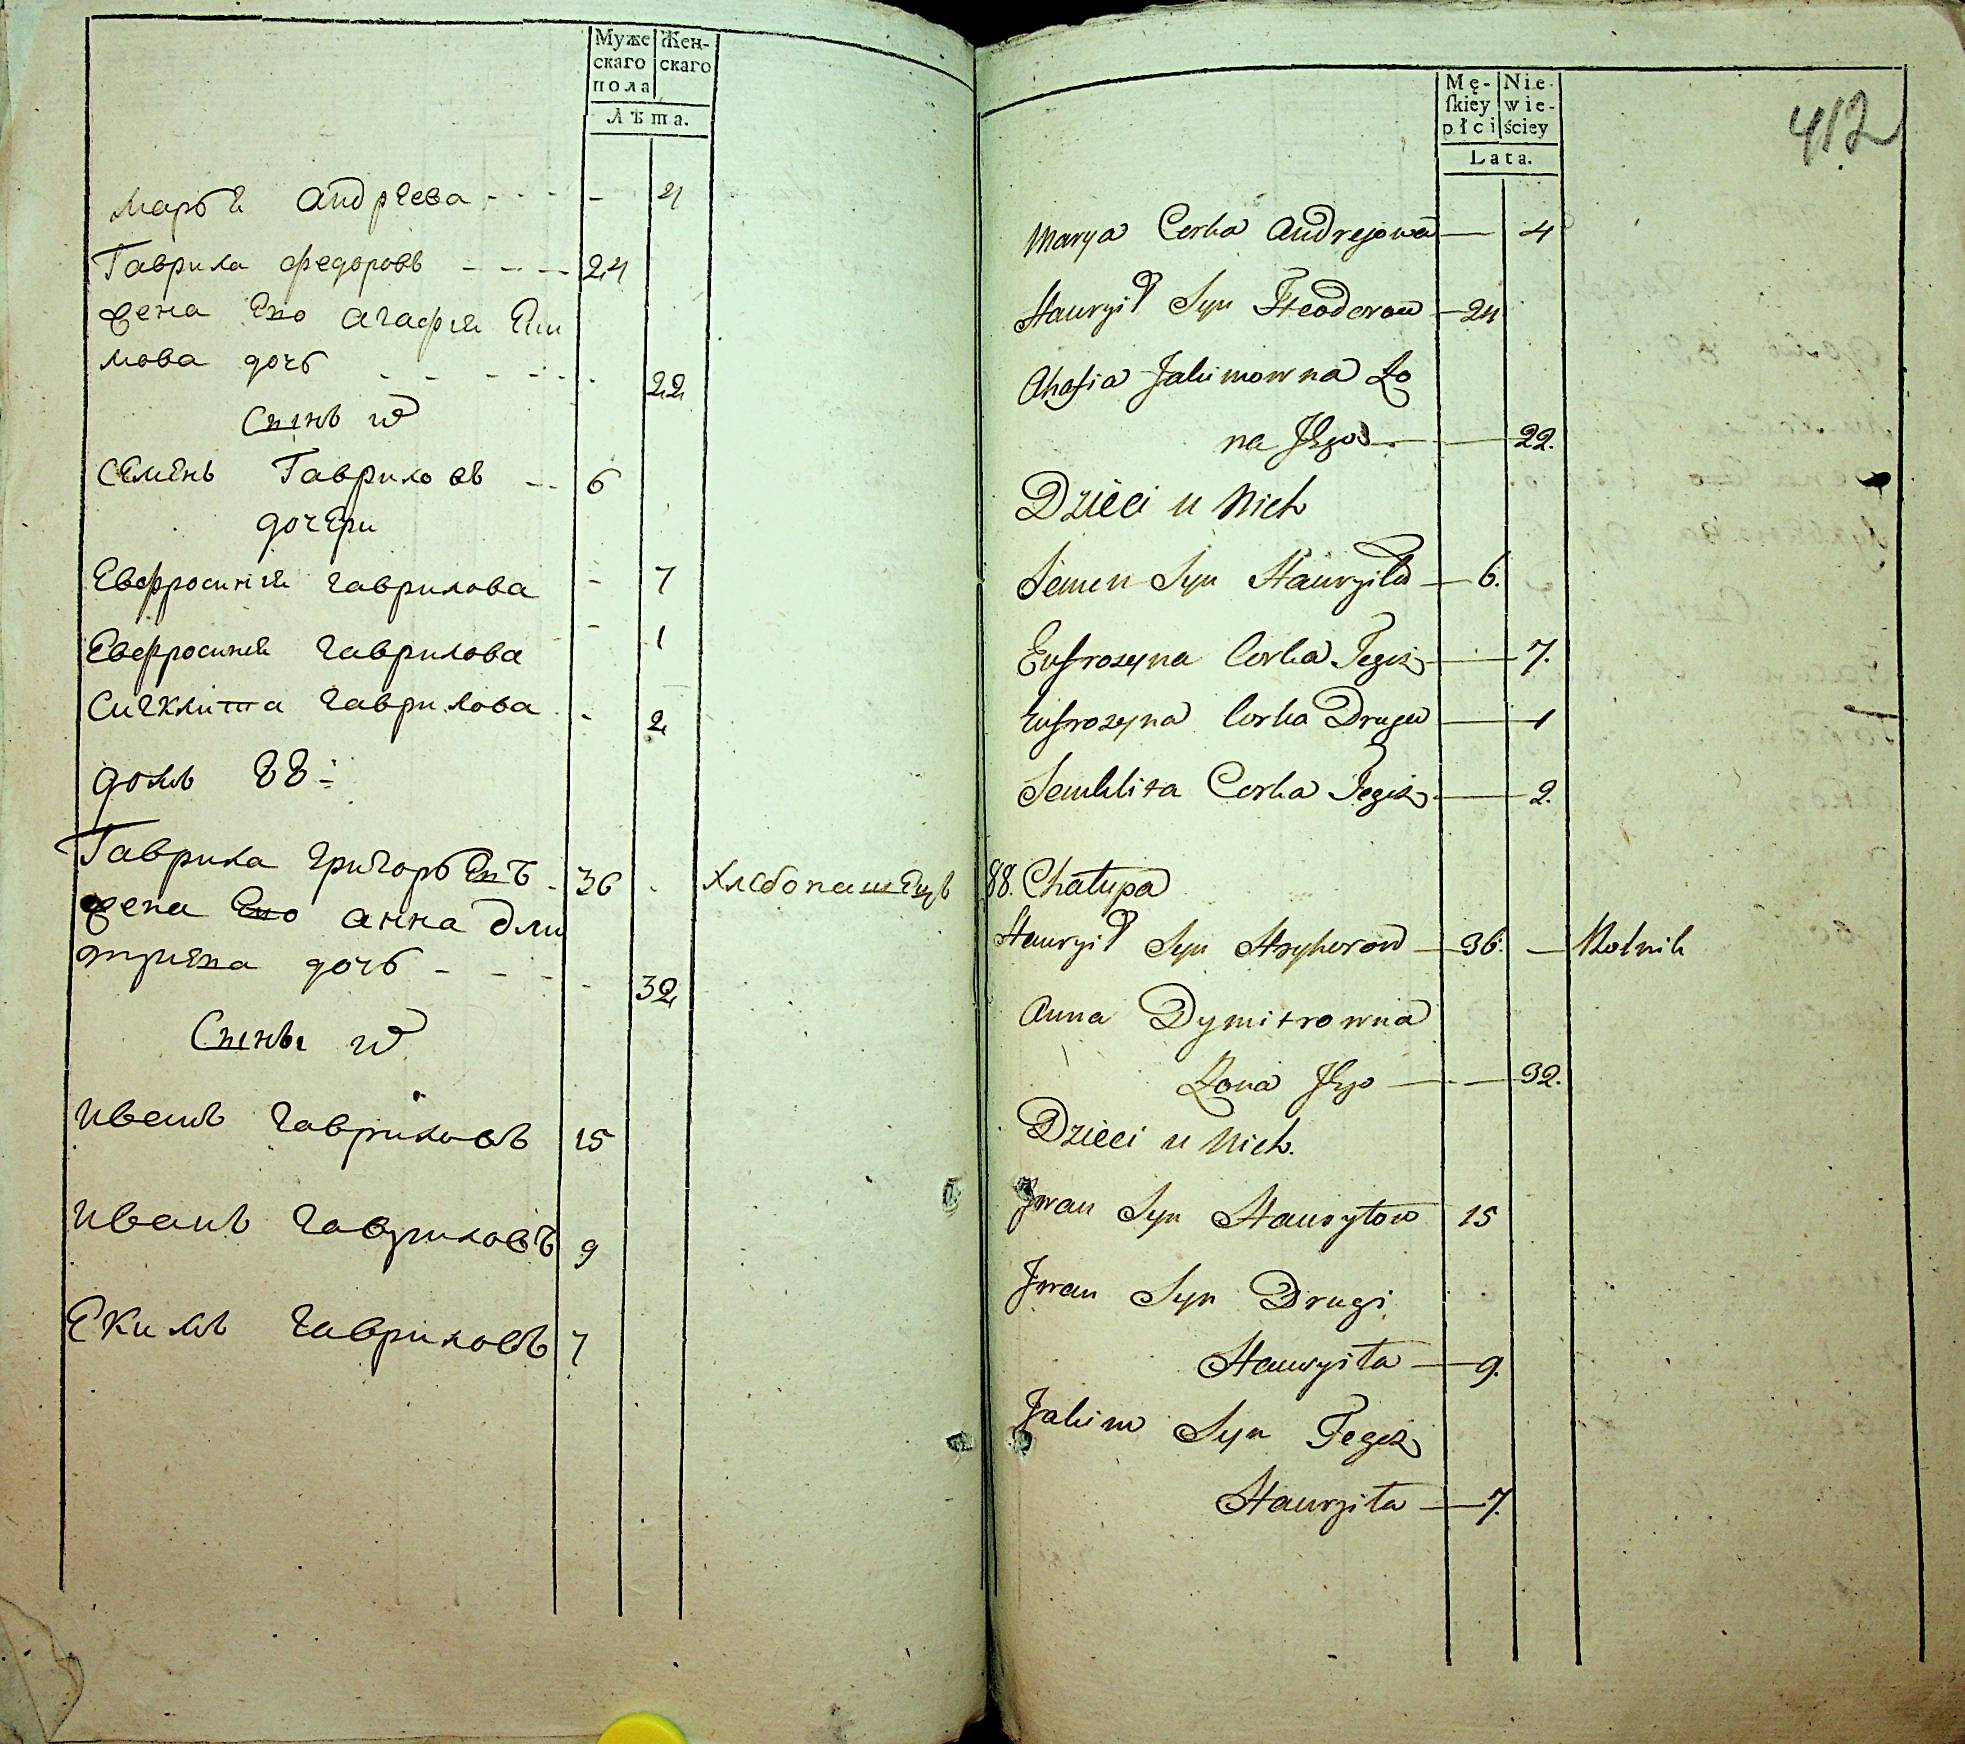 Муже Жен-
скаго скаго
пола
Лѣта.
марья андрѣева - - - - 4
Гаврила федоровъ - - - 24
жена Ево агафия Еки
мова дочь - - - - - 22
Сынъ
Семенъ Гавриловъ - - 6
дочери
Евфросиния гаврилова - 7
Евфросиния гаврилова - 1
Сигклита гаврилова - 2
домъ 88:
Гаврила григорьевъ - 36 - хлебопашецъ
жена Ево анна дми
триева дочь - - - - 32
Сыны
иванъ гавриловъ 15
иванъ гавриловъ 9
Екимъ гавриловъ 7
Mę- Nie-
ſkiey wie-
płci ściey
Lata.
412
Marya Corka Andrejowa — 4
Hauryił Syn Heodorow — 24
Ahafia Jakimowna Żo
na Jego — 22.
Dzieci u Nich
Semen Syn Hauryiła — 6.
Eufrozyna Corka Tegoż — 7.
Eufrozyna Corka Druga — 1
Semklita Corka Tegoż — 2.
88. Chałupa
Hauryił Syn Hryhorow — 36. — Rolnik
Anna Dymitrowna
Żona Jego — 32.
Dzieci u Nich.
Jwan Syn Hauryłow 15
Jwan Syn Drugi
Hauryiła — 9.
Jakim Syn Tegoż
Hauryiła — 7.